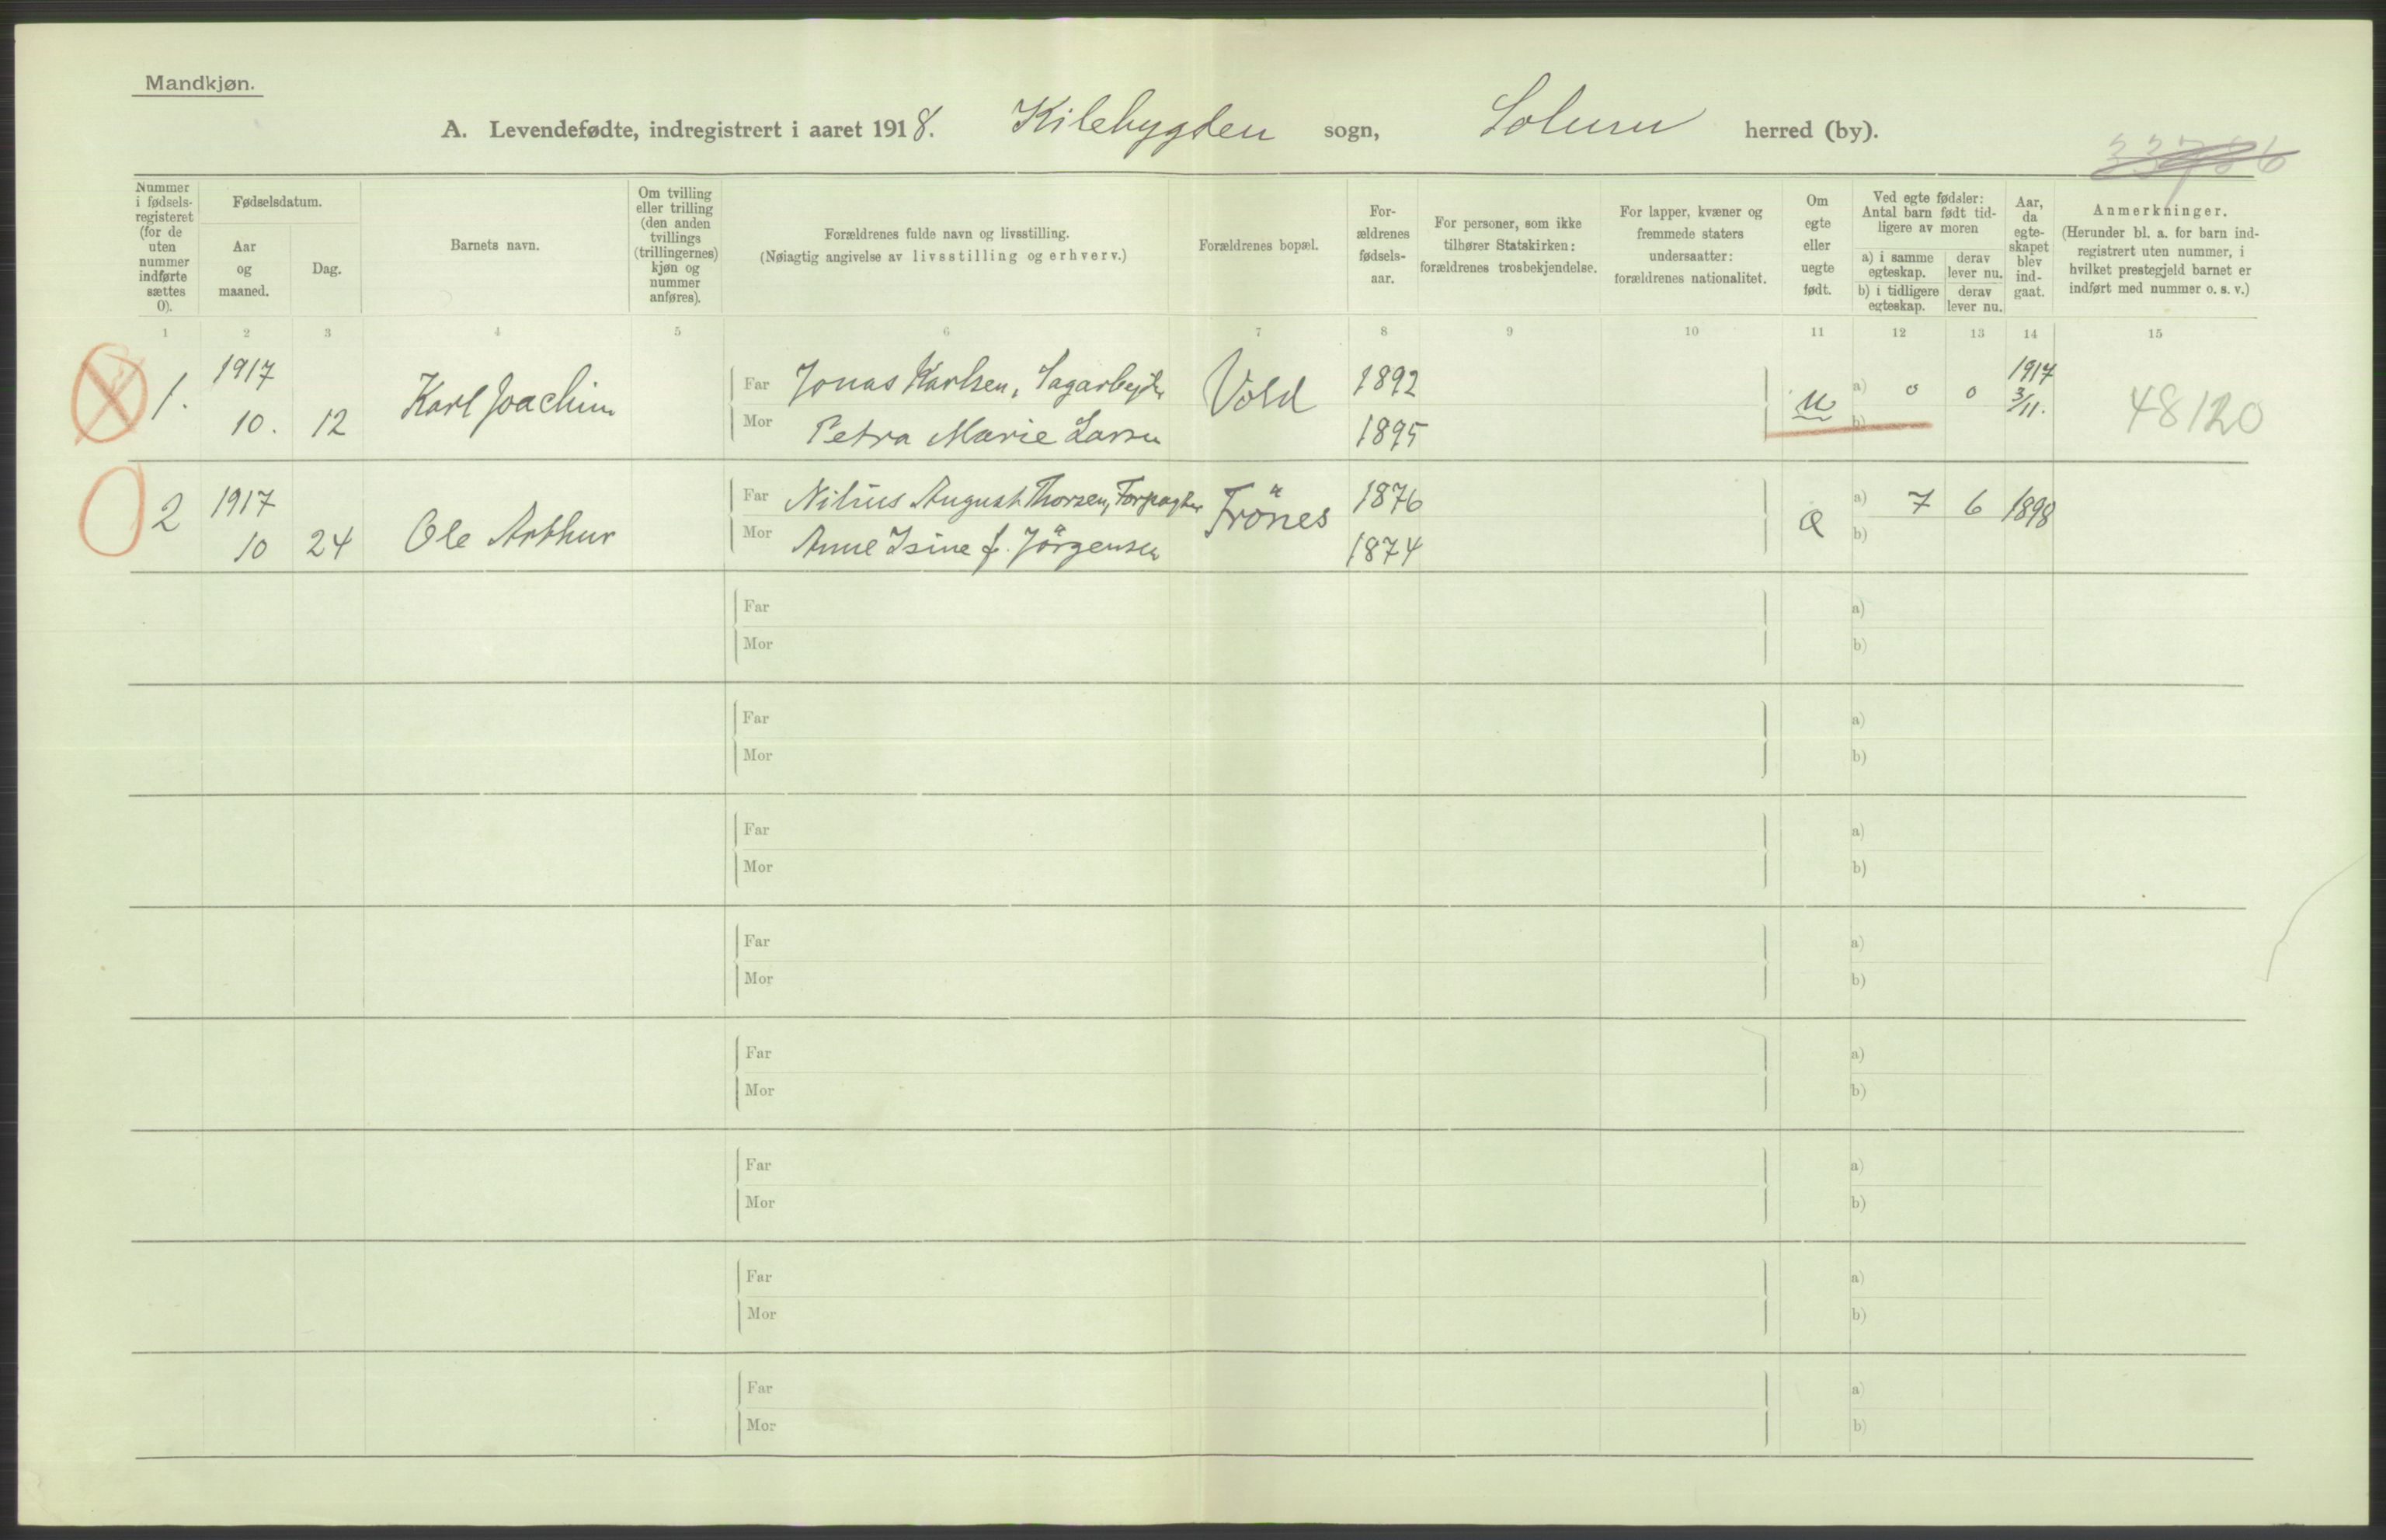 Mandkjøn.
A. Levendefødte, indregistrert i aaret 1918. Kilebygden sogn, Solum herred (by).
Nummer i fødsels-registeret (for de uten nummer indførte sættes 0).
Fødselsdatum.
Aar og maaned.
Dag.
Barnets navn.
Om tvilling eller trilling (den anden tvillings (trillingernes) kjøn og nummer anføres).
Forældrenes fulde navn og livsstilling.
(Nøiagtig angivelse av livsstilling og erhverv.)
Forældrenes bopæl.
For-ældrenes fødsels-aar.
For personer, som ikke tilhører Statskirken: forældrenes trosbekjendelse.
For lapper, kvæner og fremmede staters undersaatter: forældrenes nationalitet.
Om egte eller uegte født.
Ved egte fødsler: Antal barn født tid-ligere av moren
a) i samme egteskap.
derav lever nu.
b) i tidligere egteskap.
derav lever nu.
Aar, da egte-skapet blev ind-gaat.
Anmerkninger.
(Herunder bl. a. for barn ind-registrert uten nummer, i hvilket prestegjeld barnet er indført med nummer o. s. v.)
1 2 3 4 5 6 7 8 9 10 11 12 13 14 15
1. 1917 10. 12 Karl Joachim
Far Jonas Karlsen, Sagarbejder Vold 1892
Mor Petra Marie Larsen 1895
u a) 0 0 1917 3/11. 48120
b)
2 1917 10 24 Ole Arthur
Far Nilius August Thorsen, Forpagter Frönes 1876
Mor Anne Isine f. Jörgensen 1874
a) 7 6 1898
b)
Far a)
Mor b)
Far a)
Mor b)
Far a)
Mor b)
Far a)
Mor b)
Far a)
Mor b)
Far a)
Mor b)
Far a)
Mor b)
Far a)
Mor b)